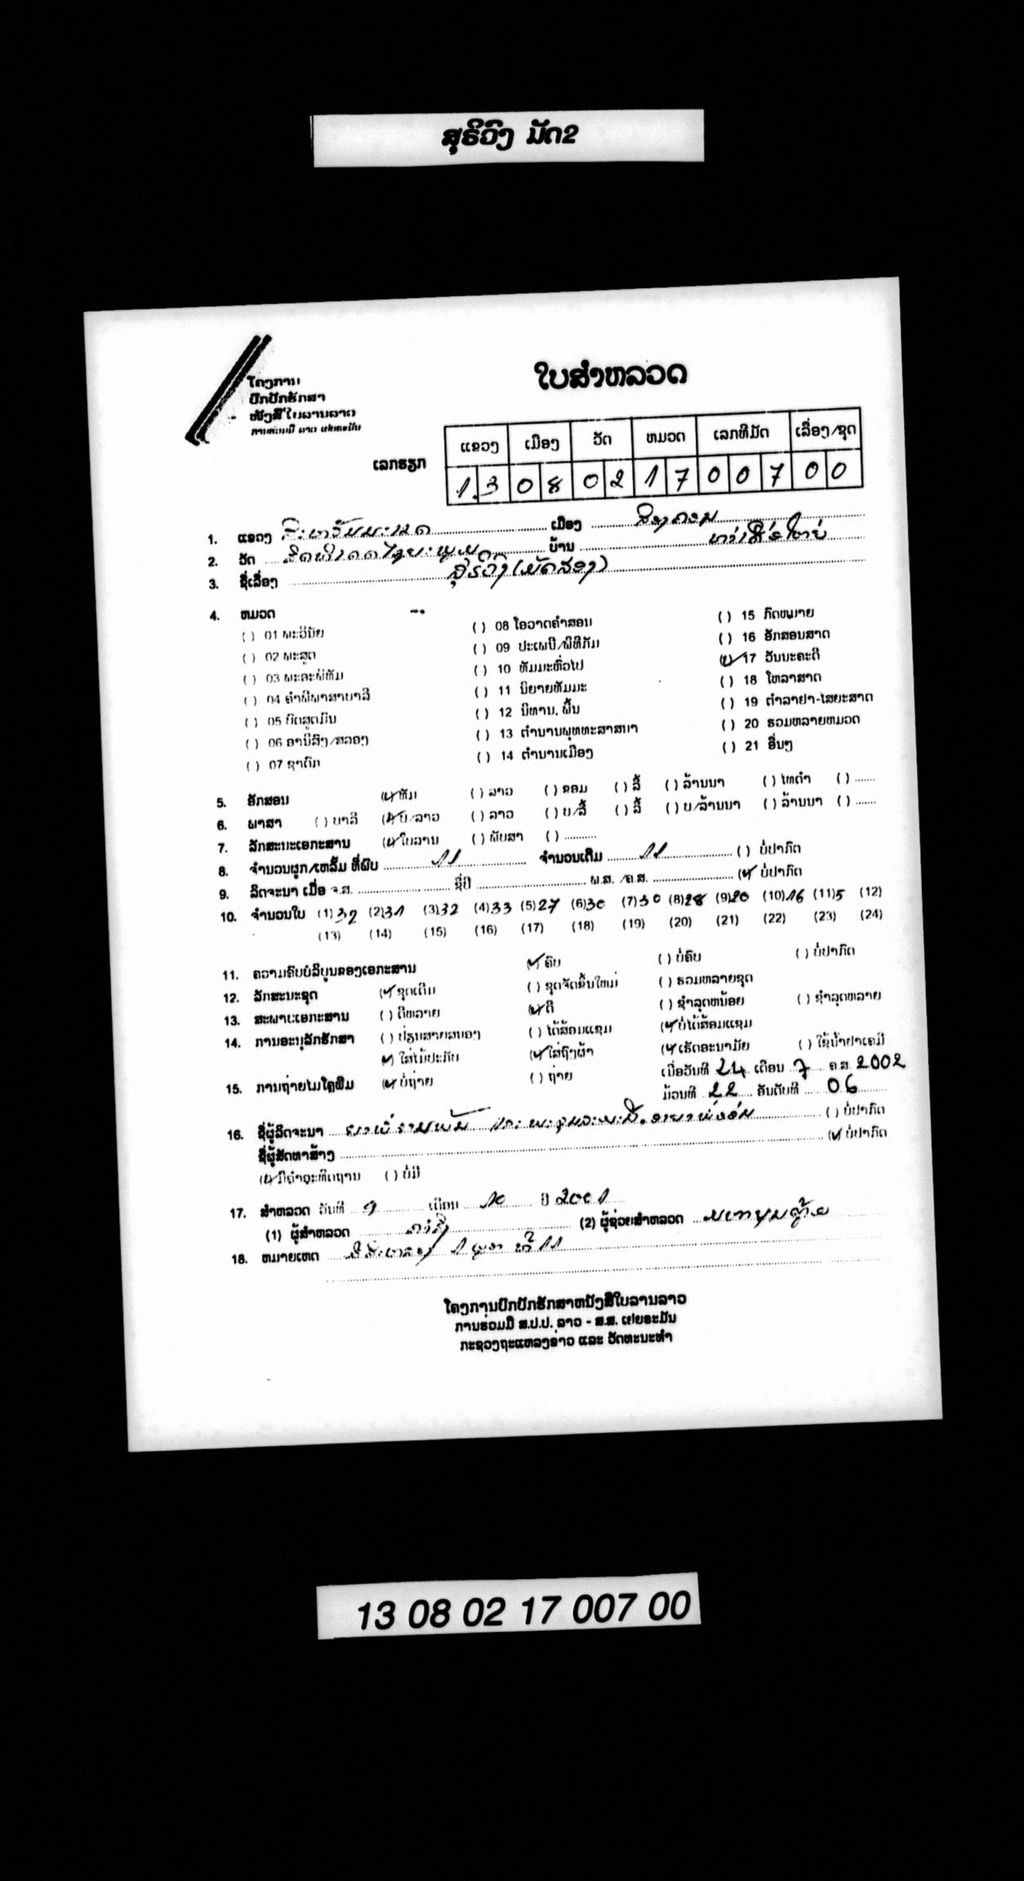 ສຸຣິວົງ ມັດ2
ໂຄງການ
ປົກປັກຮັກສາ
ໜັງສືໃບລານລາວ
ການຮ່ວມມື ລາວ ເຢຍຣະມັນ
ໃບສຳຫລວດ
ແຂວງ ເມືອງ ວັດ ຫມວດ ເລກທີມັດ ເລື່ອງ/ຊຸດ
ເລກຮຽກ 1 3 0 8 0 2 1 7 0 0 7 0 0
1. ແຂວງ ສະຫວັນນະເຂດ ເມືອງ ສອງຄອນ
2. ວັດ ບ້ານ
3. ຊື່ເລື່ອງ ສຸຣິວົງ (ມັດສອງ)
4. ຫມວດ
( ) 01 ພະວິນັຍ ( ) 08 ໂອວາດຄຳສອນ ( ) 15 ກົດໝາຍ
( ) 02 ພະສູດ ( ) 09 ປະເພນີ/ພິທີກັມ ( ) 16 ອັກສອນສາດ
( ) 03 ພະອະພິທັມ ( ) 10 ທັມມະທົ່ວໄປ (✓) 17 ວັນນະຄະດີ
( ) 04 ຄຳພີພາສາບາລີ ( ) 11 ນິຍາຍທັມມະ ( ) 18 ໂຫລາສາດ
( ) 05 ບົດສູດມົນ ( ) 12 ນິທານ, ພື້ນ ( ) 19 ຕຳລາຢາ-ໄສຍະສາດ
( ) 06 ອານິສົງ/ສລອງ ( ) 13 ຕຳນານພຸທທະສາສນາ ( ) 20 ຮວມຫລາຍຫມວດ
( ) 07 ຊາດົກ ( ) 14 ຕຳນານເມືອງ ( ) 21 ອື່ນໆ
5. ອັກສອນ (✓) ທັມ ( ) ລາວ ( ) ຂອມ ( ) ລື້ ( ) ລ້ານນາ ( ) ໄທດຳ ( ) ......
6. ພາສາ ( ) ບາລີ (✓) ບ/ລາວ ( ) ລາວ ( ) ບ/ລື້ ( ) ລື້ ( ) ບ/ລ້ານນາ ( ) ລ້ານນາ ( ) ......
7. ລັກສະນະເອກະສານ (✓) ໃບລານ ( ) ພັບສາ ( ) ..........
8. ຈຳນວນຜູກ/ເຫລັ້ມ ທີ່ພົບ 11 ຈຳນວນເຕັມ 11 ( ) ບໍ່ປາກົດ
9. ລິດຈະນາ ເມື່ອ ຈ.ສ. ຊື່ປີ ພ.ສ. /ຄ.ສ. (✓) ບໍ່ປາກົດ
10. ຈຳນວນໃບ (1) 32 (2) 31 (3) 32 (4) 33 (5) 27 (6) 30 (7) 30 (8) 28 (9) 20 (10) 16 (11) 5 (12)
(13) (14) (15) (16) (17) (18) (19) (20) (21) (22) (23) (24)
11. ຄວາມຄົບບໍລິບູນຂອງເອກະສານ (✓) ຄົບ ( ) ບໍ່ຄົບ ( ) ບໍ່ປາກົດ
12. ລັກສະນະຊຸດ (✓) ຊຸດເດີມ ( ) ຊຸດຈັດຂຶ້ນໃຫມ່ ( ) ຮວມຫລາຍຊຸດ
13. ສະພາບເອກະສານ ( ) ດີຫລາຍ (✓) ດີ ( ) ຊຳລຸດຫນ້ອຍ ( ) ຊຳລຸດຫລາຍ
14. ການອະນຸລັກຮັກສາ ( ) ປ່ຽນສາຍສນອງ ( ) ໄດ້ສ້ອມແຊມ (✓) ບໍ່ໄດ້ສ້ອມແຊມ
(✓) ໃສ່ໄມ້ປະກັບ (✓) ໃສ່ຖົງຜ້າ (✓) ເຮັດອະນາມັຍ ( ) ໃຊ້ນ້ຳຢາເຄມີ
15. ການຖ່າຍໄມໂຄຼຟິມ (✓) ບໍ່ຖ່າຍ ( ) ຖ່າຍ ເມື່ອວັນທີ 24 ເດືອນ 7 ຄ.ສ. 2002
ມ້ວນທີ 22 ອັນດັບທີ 06
16. ຊື່ຜູ້ລິດຈະນາ ( ) ບໍ່ປາກົດ
ຊື່ຜູ້ສັດທາສ້າງ (✓) ບໍ່ປາກົດ
(✓) ມີຄຳອະທິດຖານ ( ) ບໍ່ມີ
17. ສຳຫລວດ ວັນທີ 9 ເດືອນ 10 ປີ 2001
(1) ຜູ້ສຳຫລວດ (2) ຜູ້ຊ່ວຍສຳຫລວດ
18. ຫມາຍເຫດ
ໂຄງການປົກປັກຮັກສາຫນັງສືໃບລານລາວ
ການຮ່ວມມື ສ.ປ.ປ. ລາວ - ສ.ສ. ເຢຍຣະມັນ
ກະຊວງຖະແຫລງຂ່າວ ແລະ ວັດທະນະທຳ
13 08 02 17 007 00